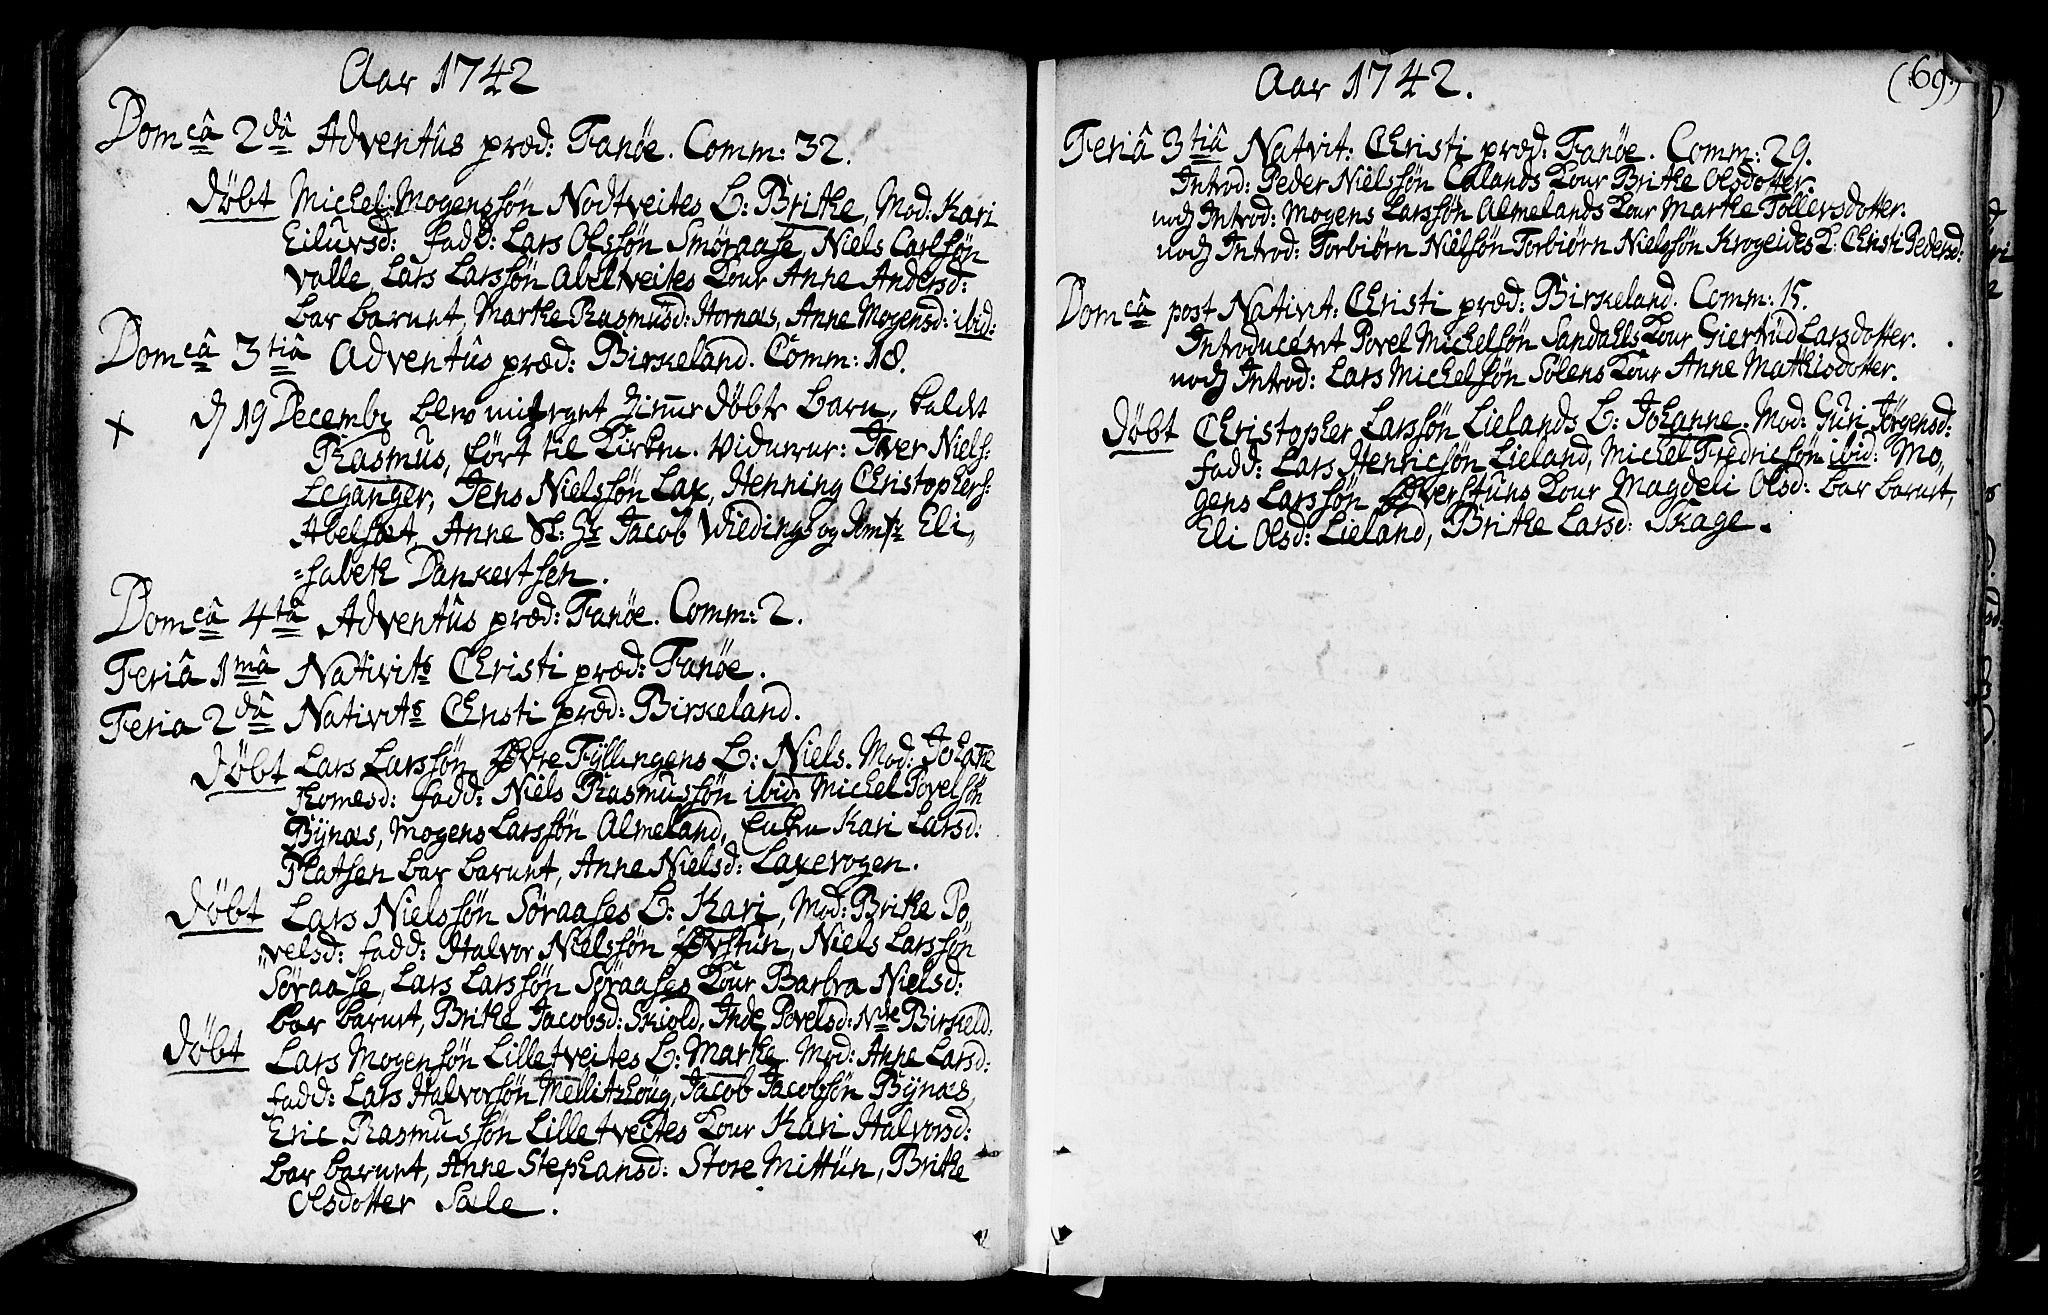 Aar 1742
Dom câ 2 dâ Adventûs præd: Fanöe. Comm: 32.
döbt Michel Mogenssön Nodtveites B: Brithe, Mod: Kari
Eiluvsd: fadd: Lars Olssön Smöraase, Niels Carlssön
Valle, Lars Larssön Abeltveites Kone Anne Andersd:
bar barnet, Marthe Rasmusd: Hornæs, Anne Mogensd: ibid:
Dom câ 3 tiâ Adventûs præd: Birkeland. Comm: 18.
+ d 19 Decembr blev hiemme döbte barn, kaldt
Rasmus, fört til Kirken. Vidnerne: Iver Niels:
Leganger, Jens Nielssön Lax, Henning Christophers:
Abelsæt, Anne Sl: Hr Jacob Wiedings og Jomfr Eli„
=sabeth Dankertsen.
Dom câ 4 tâ Adventûs præd: Fanöe. Comm: 2.
Feriâ 1 mâ Nativits Christi præd: Fanöe.
Feria 2 dâ Nativits Christi præd: Birkeland.
döbt Lars Larssön Øvre Fÿllingens B: Niels. Mod: Johane
Thomesd: fadd: Niels Rasmussön ibid: Michel Povelsön
Bÿnæs, Mogens Larssön Almeland, Enken Kari Larsd:
Platsen bar barnet, Anne Nielsd: Laxevogen.
döbt Lars Nielssön Söraases B: Kari, Mod: Brithe Po„
„velsd: fadd: Halvor Nielssön Øvstun, Niels Larssön
Söraase, Lars Larssön Söraases Kone Barbra Nielsd:
bar barnet, Brithe Jacobsd: Skiold, Inde Povelsd: Ndre Birkeld.
döbt Lars Mogensön Lilletveites B: Marthe. Mod: Anne Larsd:
fadd: Lars Halvorsön Mellitzhoüg, Jacob Jacobsön Bÿnæs,
Eric Rasmussön Lilletveites Kone Kari Halvorsd:
bar barnet, Anne Stephansd: Store Mittün, Brithe
Olsdotter Sale.
Aar 1742. (69.)
Feriâ 3 tiâ Nativit: Christi præd: Fanöe. Comm: 29.
Introd: Peder Nielssön Calands Kone Brithe Olsdotter.
nock Introd: Mogens Larssön Almelands Kone Marthe Tollevsdotter.
nock Introd: Torbiörn Nielsön Torbiörn Nielssön Krogeides K: Christi Pedersd:
Dom câ post Nativit: Christi præd: Birkeland. Comm: 15.
Introduceret Povel Michelsön Sandahls Kone Giertrüd Larsdotter.
nock Introd: Lars Michelsön Sölens Kone Anne Mathisdotter.
döbt Christopher Larssön Lielands B: Johanne. Mod: Guri Jörgensd:
fadd: Lars Henricsön Lieland, Michel Fredricsön ibid: Mo„
gens Larssön Øverstuns Kone Magdeli Olsd: bar barnet,
Eli Olsd: Lieland, Brithe Larsd: Skage.